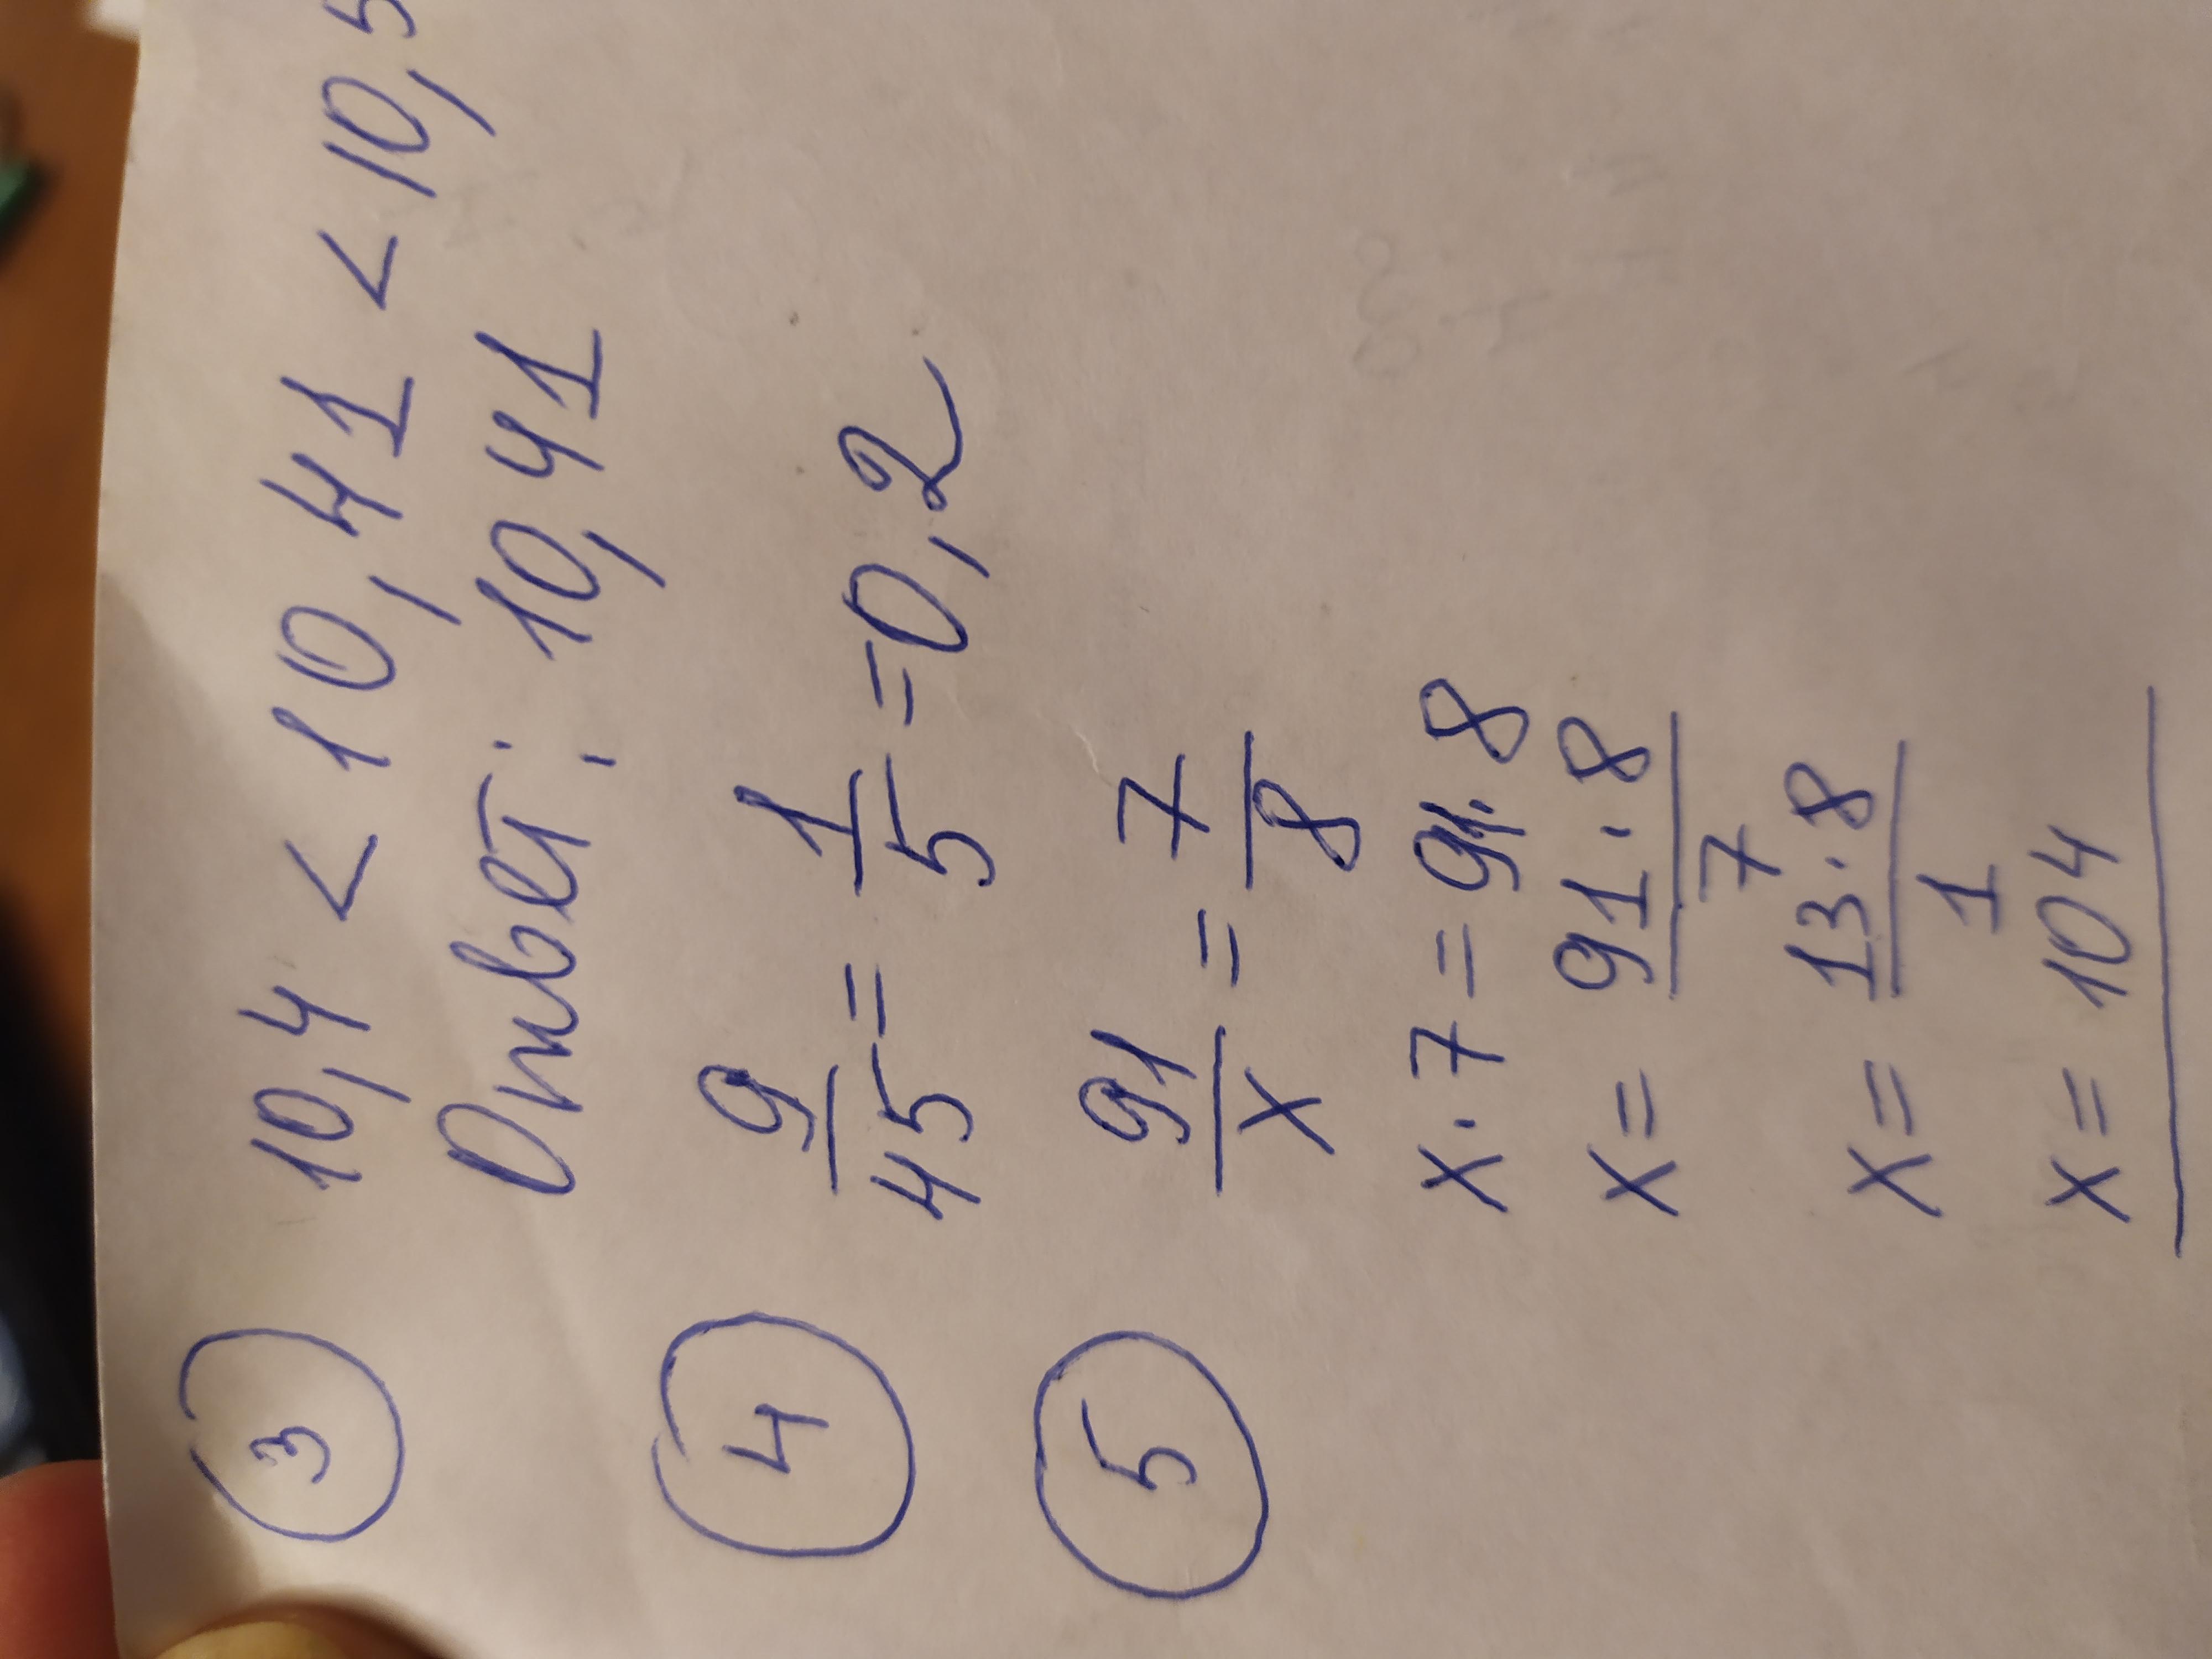 3 10,4 < 10,41 < 10,5
Ответ: 10,41
4 9/45 = 1/5 = 0,2
5 91/x = 7/8
x · 7 = 91 · 8
x = 91 · 8/7
x = 13 · 8/1
x = 104